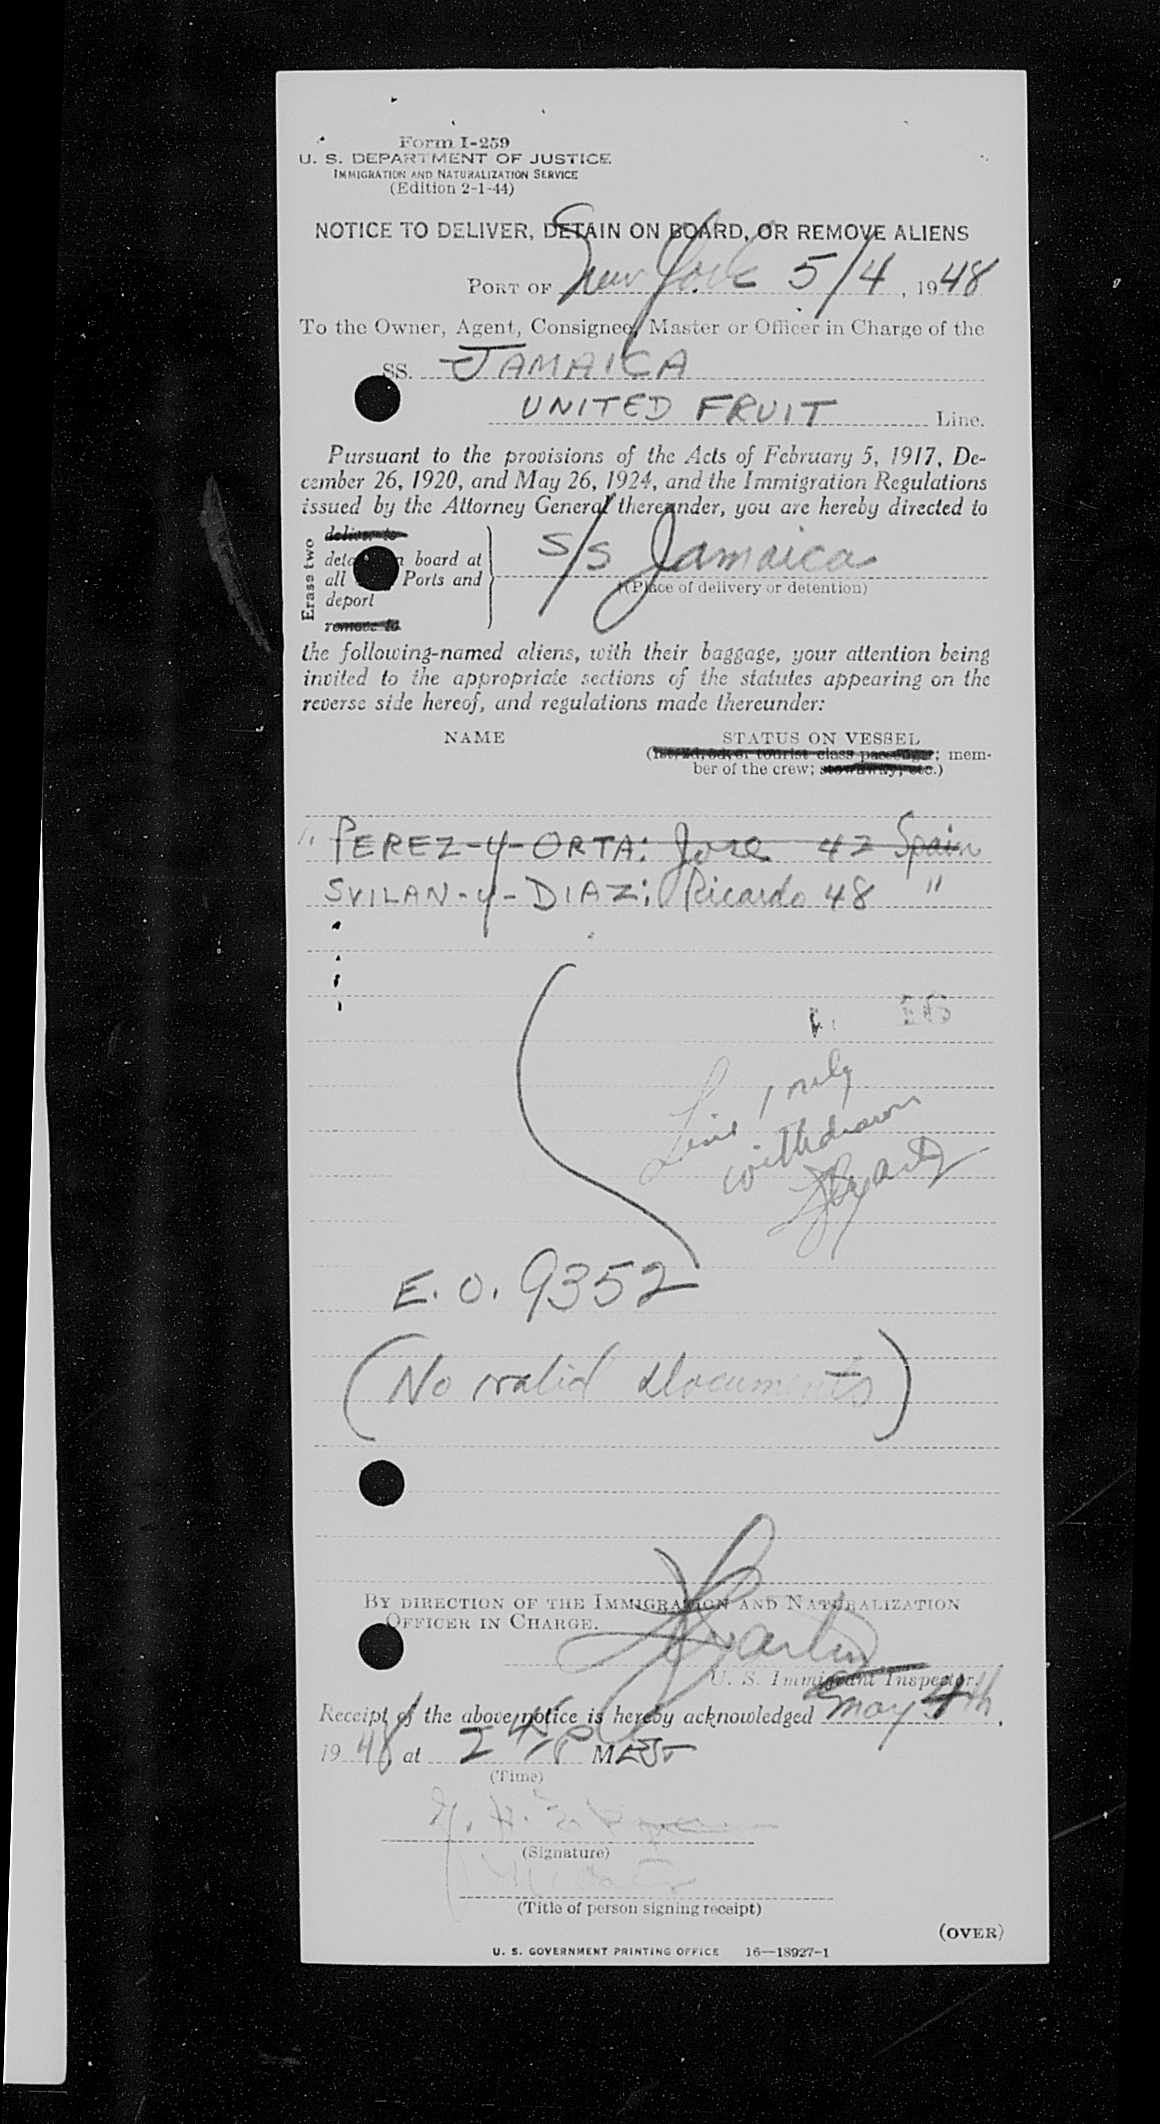 Form I-259
U. S. DEPARTMENT OF JUSTICE
IMMIGRATION AND NATURALIZATION SERVICE
(Edition 2-1-44)
NOTICE TO DELIVER, DETAIN ON BOARD, OR REMOVE ALIENS
PORT OF New York 5/4, 1948
To the Owner, Agent, Consignee, Master or Officer in Charge of the
SS. JAMAICA
UNITED FRUIT Line.
Pursuant to the provisions of the Acts of February 5, 1917, De-
cember 26, 1920, and May 26, 1924, and the Immigration Regulations
issued by the Attorney General thereunder, you are hereby directed to
Erase two
deliver to
detain on board at
all Ports and
deport
remove to
S/S Jamaica
(Place of delivery or detention)
the following-named aliens, with their baggage, your attention being
invited to the appropriate sections of the statutes appearing on the
reverse side hereof, and regulations made thereunder:
NAME STATUS ON VESSEL
(1st, 2d, 3d, or tourist class passenger; mem-
ber of the crew; stowaway, etc.)
PEREZ-y-ORTA: Jose 42 Spain
SVILAN-y-DIAZ: Ricardo 48 "
Line 1 only
withdrawn
E. O. 9352
(No valid documents)
BY DIRECTION OF THE IMMIGRATION AND NATURALIZATION
OFFICER IN CHARGE.
U. S. Immigrant Inspector.
Receipt of the above notice is hereby acknowledged May 4th,
1948, at 2 45 P M EST
(Time)
(Signature)
(Title of person signing receipt)
(OVER)
U. S. GOVERNMENT PRINTING OFFICE 16—18927-1